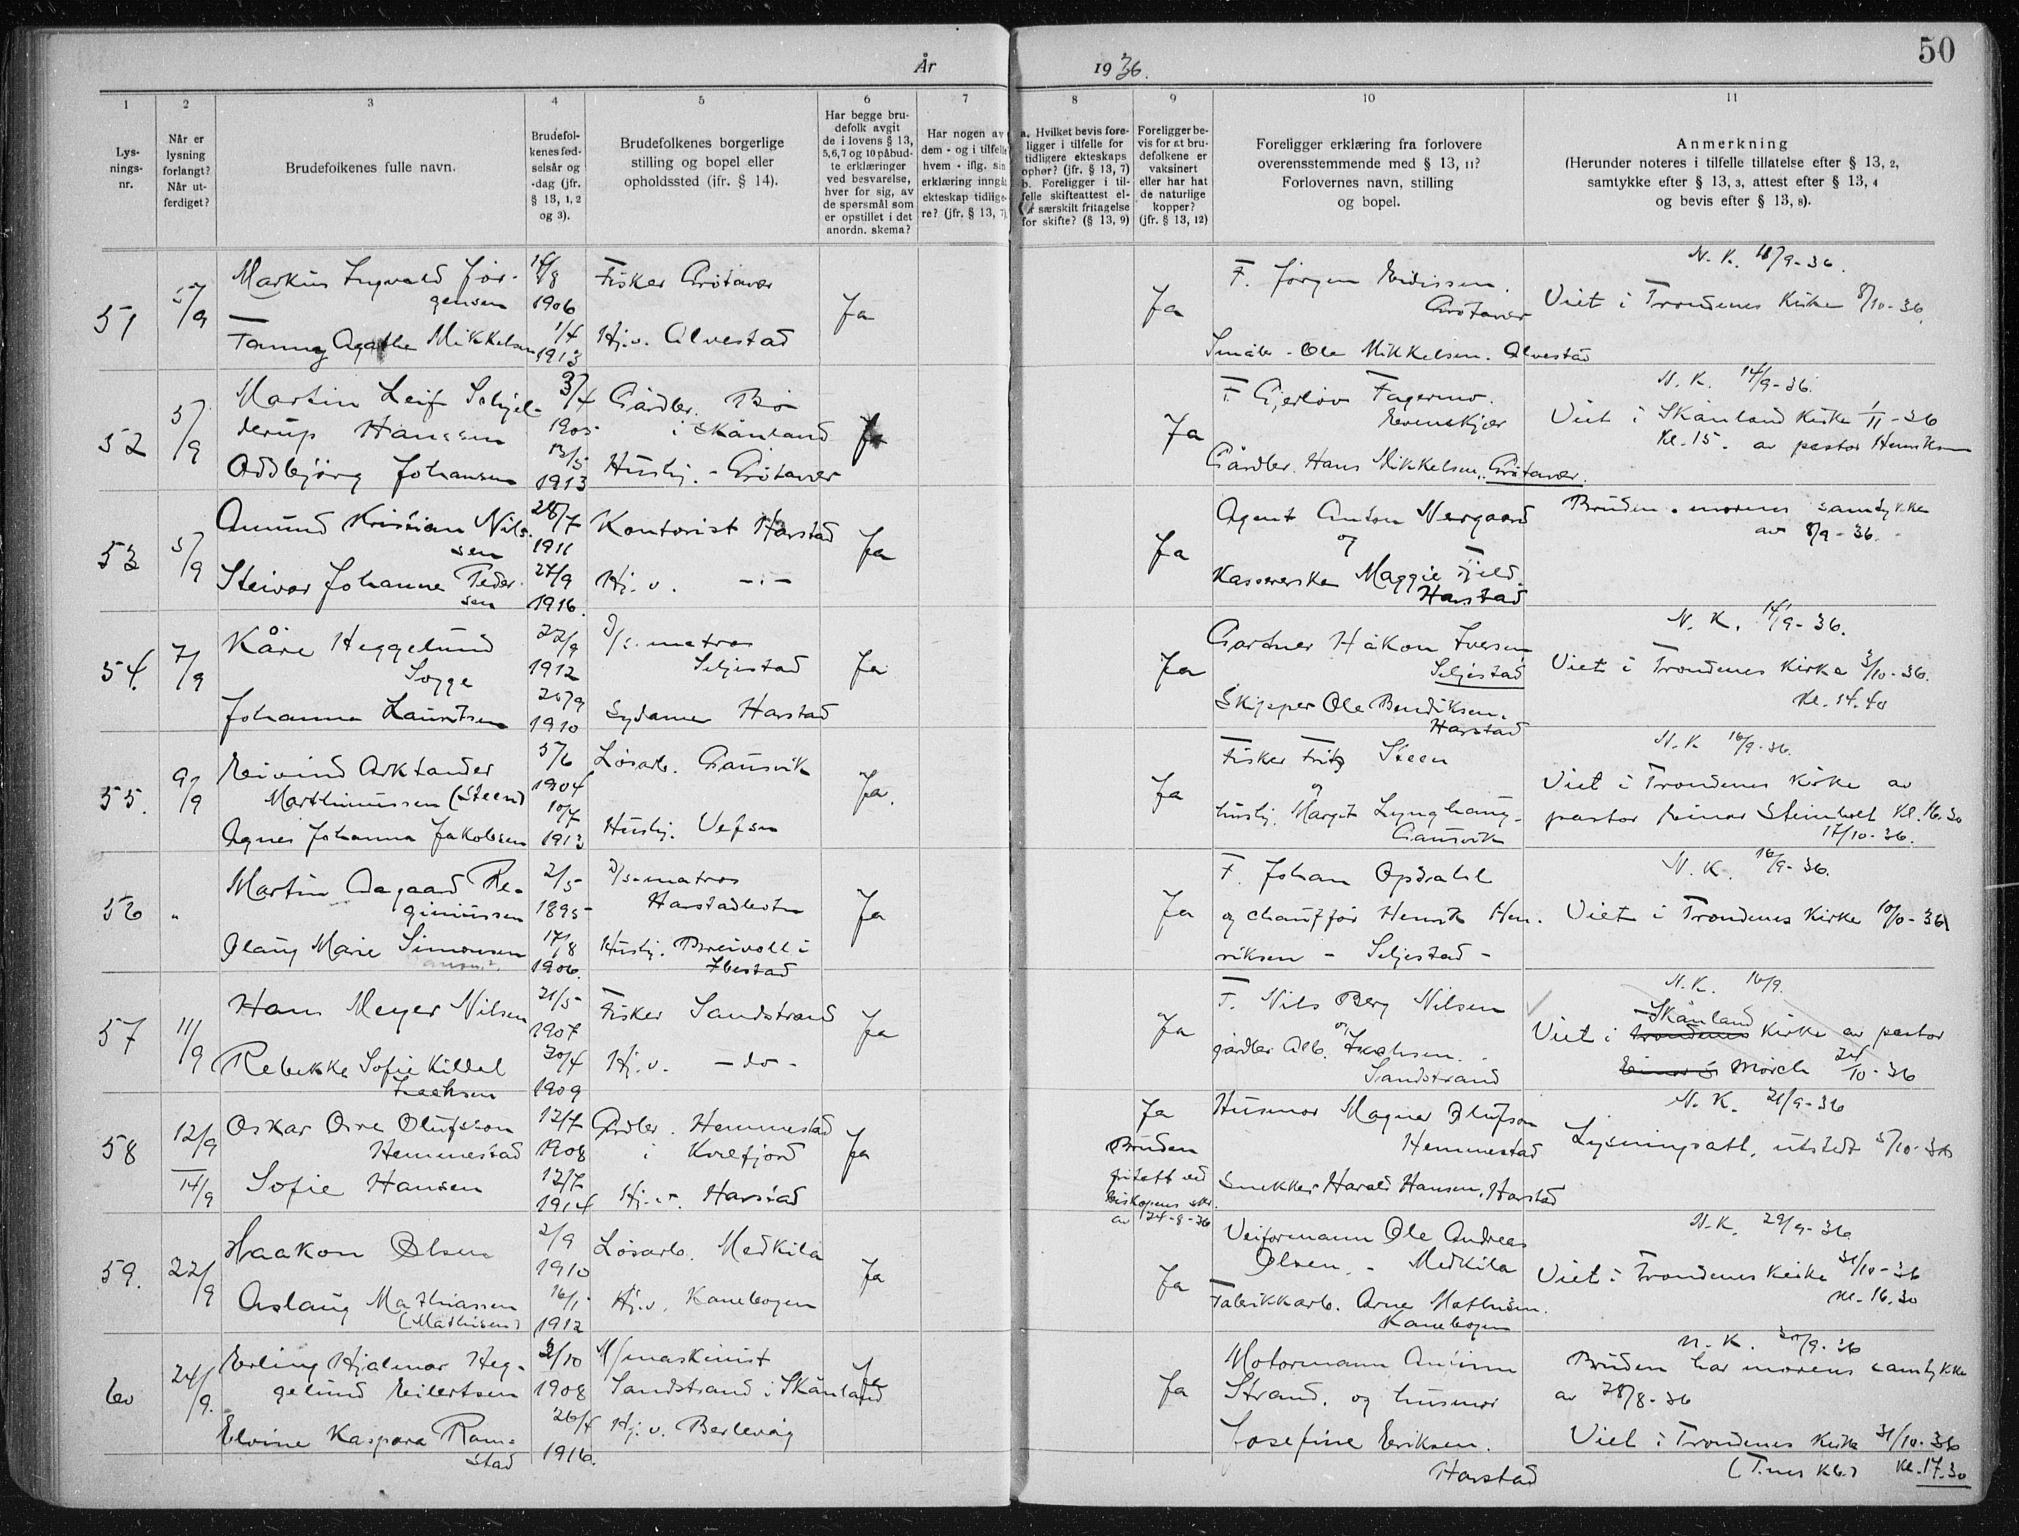 År 1936.
50
1 2 3 4 5 6 7 8 9 10 11
Lys-
nings-
nr.
Når er
lysning
forlangt?
Når ut-
ferdiget?
Brudefolkenes fulle navn.
Brudefol-
kenes fød-
selsår og
-dag (jfr.
§ 13, 1, 2
og 3).
Brudefolkenes borgerlige
stilling og bopel eller
opholdssted (jfr. § 14).
Har begge bru-
defolk avgit
de i lovens § 13,
5,6,7 og 10 påbud-
te erklæringer
ved besvarelse,
hver for sig, av
de spørsmål som
er opstillet i det
anordn. skema?
Har nogen av
dem - og i tilfelle
hvem - iflg. sin
erklæring inngåt
ekteskap tidlige-
re? (jfr. § 13, 7)
a. Hvilket bevis fore-
ligger i tilfelle for
tidligere ekteskaps
ophør? (jfr. § 13, 7)
b. Foreligger i til-
felle skifteattest el-
særskilt fritagelse
for skifte? (§ 13, 9)
Foreligger be-
vis for at bru-
defolkene er
vaksinert
eller har hat
de naturlige
kopper?
(jfr. § 13, 12)
Foreligger erklæring fra forlovere
overensstemmende med § 13, 11?
Forlovernes navn, stilling
og bopel.
Anmerkning
(Herunder noteres i tilfelle tillatelse efter § 13, 2,
samtykke efter § 13, 3, attest efter § 13, 4
og bevis efter § 13, 8).
51
5/9
Markus Ingvald Jør-
gensen
1906
Fanny Agathe Mikkelsen
1/4
1913
Fisker Grøtavær
Hj.v. Alvestad
Ja
Ja
F. Jørgen Eidissen.
Grøtavær
Småbr. Ole Mikkelsen. Alvestad
N. K. 18/9-36.
Viet i Trondenes Kirke 8/10-36.
52
5/9
Martin Leif Schjel-
derup Hanssen
3/4
1905
Oddbjørg Johansen
13/5
1913
Gårdbr. Bø
i Skånland
Husbj. - Grøtavær
Ja
Ja
F. Gjerløv Fagermo.
Evenskjer
Gårdbr. Hans Mikkelsen, Grøtavær.
N. K. 14/9-36.
Viet i Skånland Kirke 1/11-36
Kl. 15. av pastor Henriksen
53
5/9
Amund Kristian Nils-
sen
28/7
1911
Steivor Johanne Peder-
sen
27/9
1916.
Kontorist Harstad
Hj. v. -:-
Ja
Ja
Agent Anton Nergaard
og
Kassererske Maggie Fjeld
Harstad
Brudens morens samtykke
av 8/9-36.
54.
7/9
Kåre Heggelund
Sogge
22/9
1912
Johanna Lauritsen
1910
D/s. matros
Seljestad
Sydame Harstad
Ja
Ja
Gartner Håkon Iversen
Seljestad
Skipper Ole Bendiksen.
Harstad
N. K. 14/9-36.
Viet i Trondenes Kirke 3/10-36.
Kl. 14.40
55.
9/9
Eivind Arktander
Marthinussen (Steen)
5/6
1904
Agnes Johanna Jakobsen
10/7
1913
Løsarb. Gausvik
Husbj. Vefsn
Ja.
Ja
Fisker Fritz Steen
og
husbj. Margit Lynghaug-
Gausvik
N. K. 16/9-36.
Viet i Trondenes Kirke av
pastor Einar Steinholt Kl. 16.30
17/10-36.
56
"
Martin Aagaard Re-
giniussen
2/5
1895
Olaug Marie Simonsen
17/8
1906.
D/s-matros
Harstadbotn
Husbj. Breivoll i
Ibestad
Ja
Ja
F. Johan Opdahl
og chauffør Henrik Hen-
riksen - Seljestad -
N. K. 16/9-36.
Viet i Trondenes Kirke 10/10-36
57
11/9
Hans Meyer Nilsen
21/5
1907
Rebekke Sofie Kildal
Isaksen
30/4
1909
Fisker Sandstrand
Hj. v. -do-
Ja
Ja
F. Nils Berg Nilsen
og
gårdbr. Alb. Isaksen.
Sandstrand
N. K. 16/9.
Skånland
Viet i Trondenes Kirke av pastor
Einar S. Mørch 24/10-36
58
12/9
14/9
Oskar Arve Olufsson
Hemmestad
12/7
1908
Sofie Hansen
12/7
1914
Grdbr. Hemmestad
i Kvæfjord
Hj. v. Harstad
Ja
Ja
Bruden
fritatt ved
Biskopens skr.
av 24-8-36
Husmor Magna Olufson
Hemmestad
Snekker Harald Hansen, Harstad
N. K. 21/9-36
Lysningsatt. utstedt 5/10-36
59.
22/9
Haakon Olsen
2/9
1910
Aslaug Mathiassen
(Mathisen)
16/1
1912
Løsarb. Medkila
Hj. v. Kanebogen
Ja
Ja
Veiformann Ole Andreas
Olsen. - Medkila
Fabrikkarb. Arne Mathisen.
Kanebogen
N. K. 29/9-36
Viet i Trondenes Kirke 31/10-36
Kl. 16.30
60
24/9.
Erling Hjalmar Heg-
gelund Eilertsen
2/10
1908
Elvine Kaspara Ram-
stad
26/4
1916.
M/maskinist
Sandstrand i Skånland
Hj. v. Berlevåg
Ja
Ja
Motormann
Strand. og husmor
Josefine Eriksen.
Harstad
N. K. 30/9-36
Bruden har morens samtykke
av 28/8-36
Viet i Trondenes Kirke 31/10-36
(T.nes Kb.) Kl. 17.30